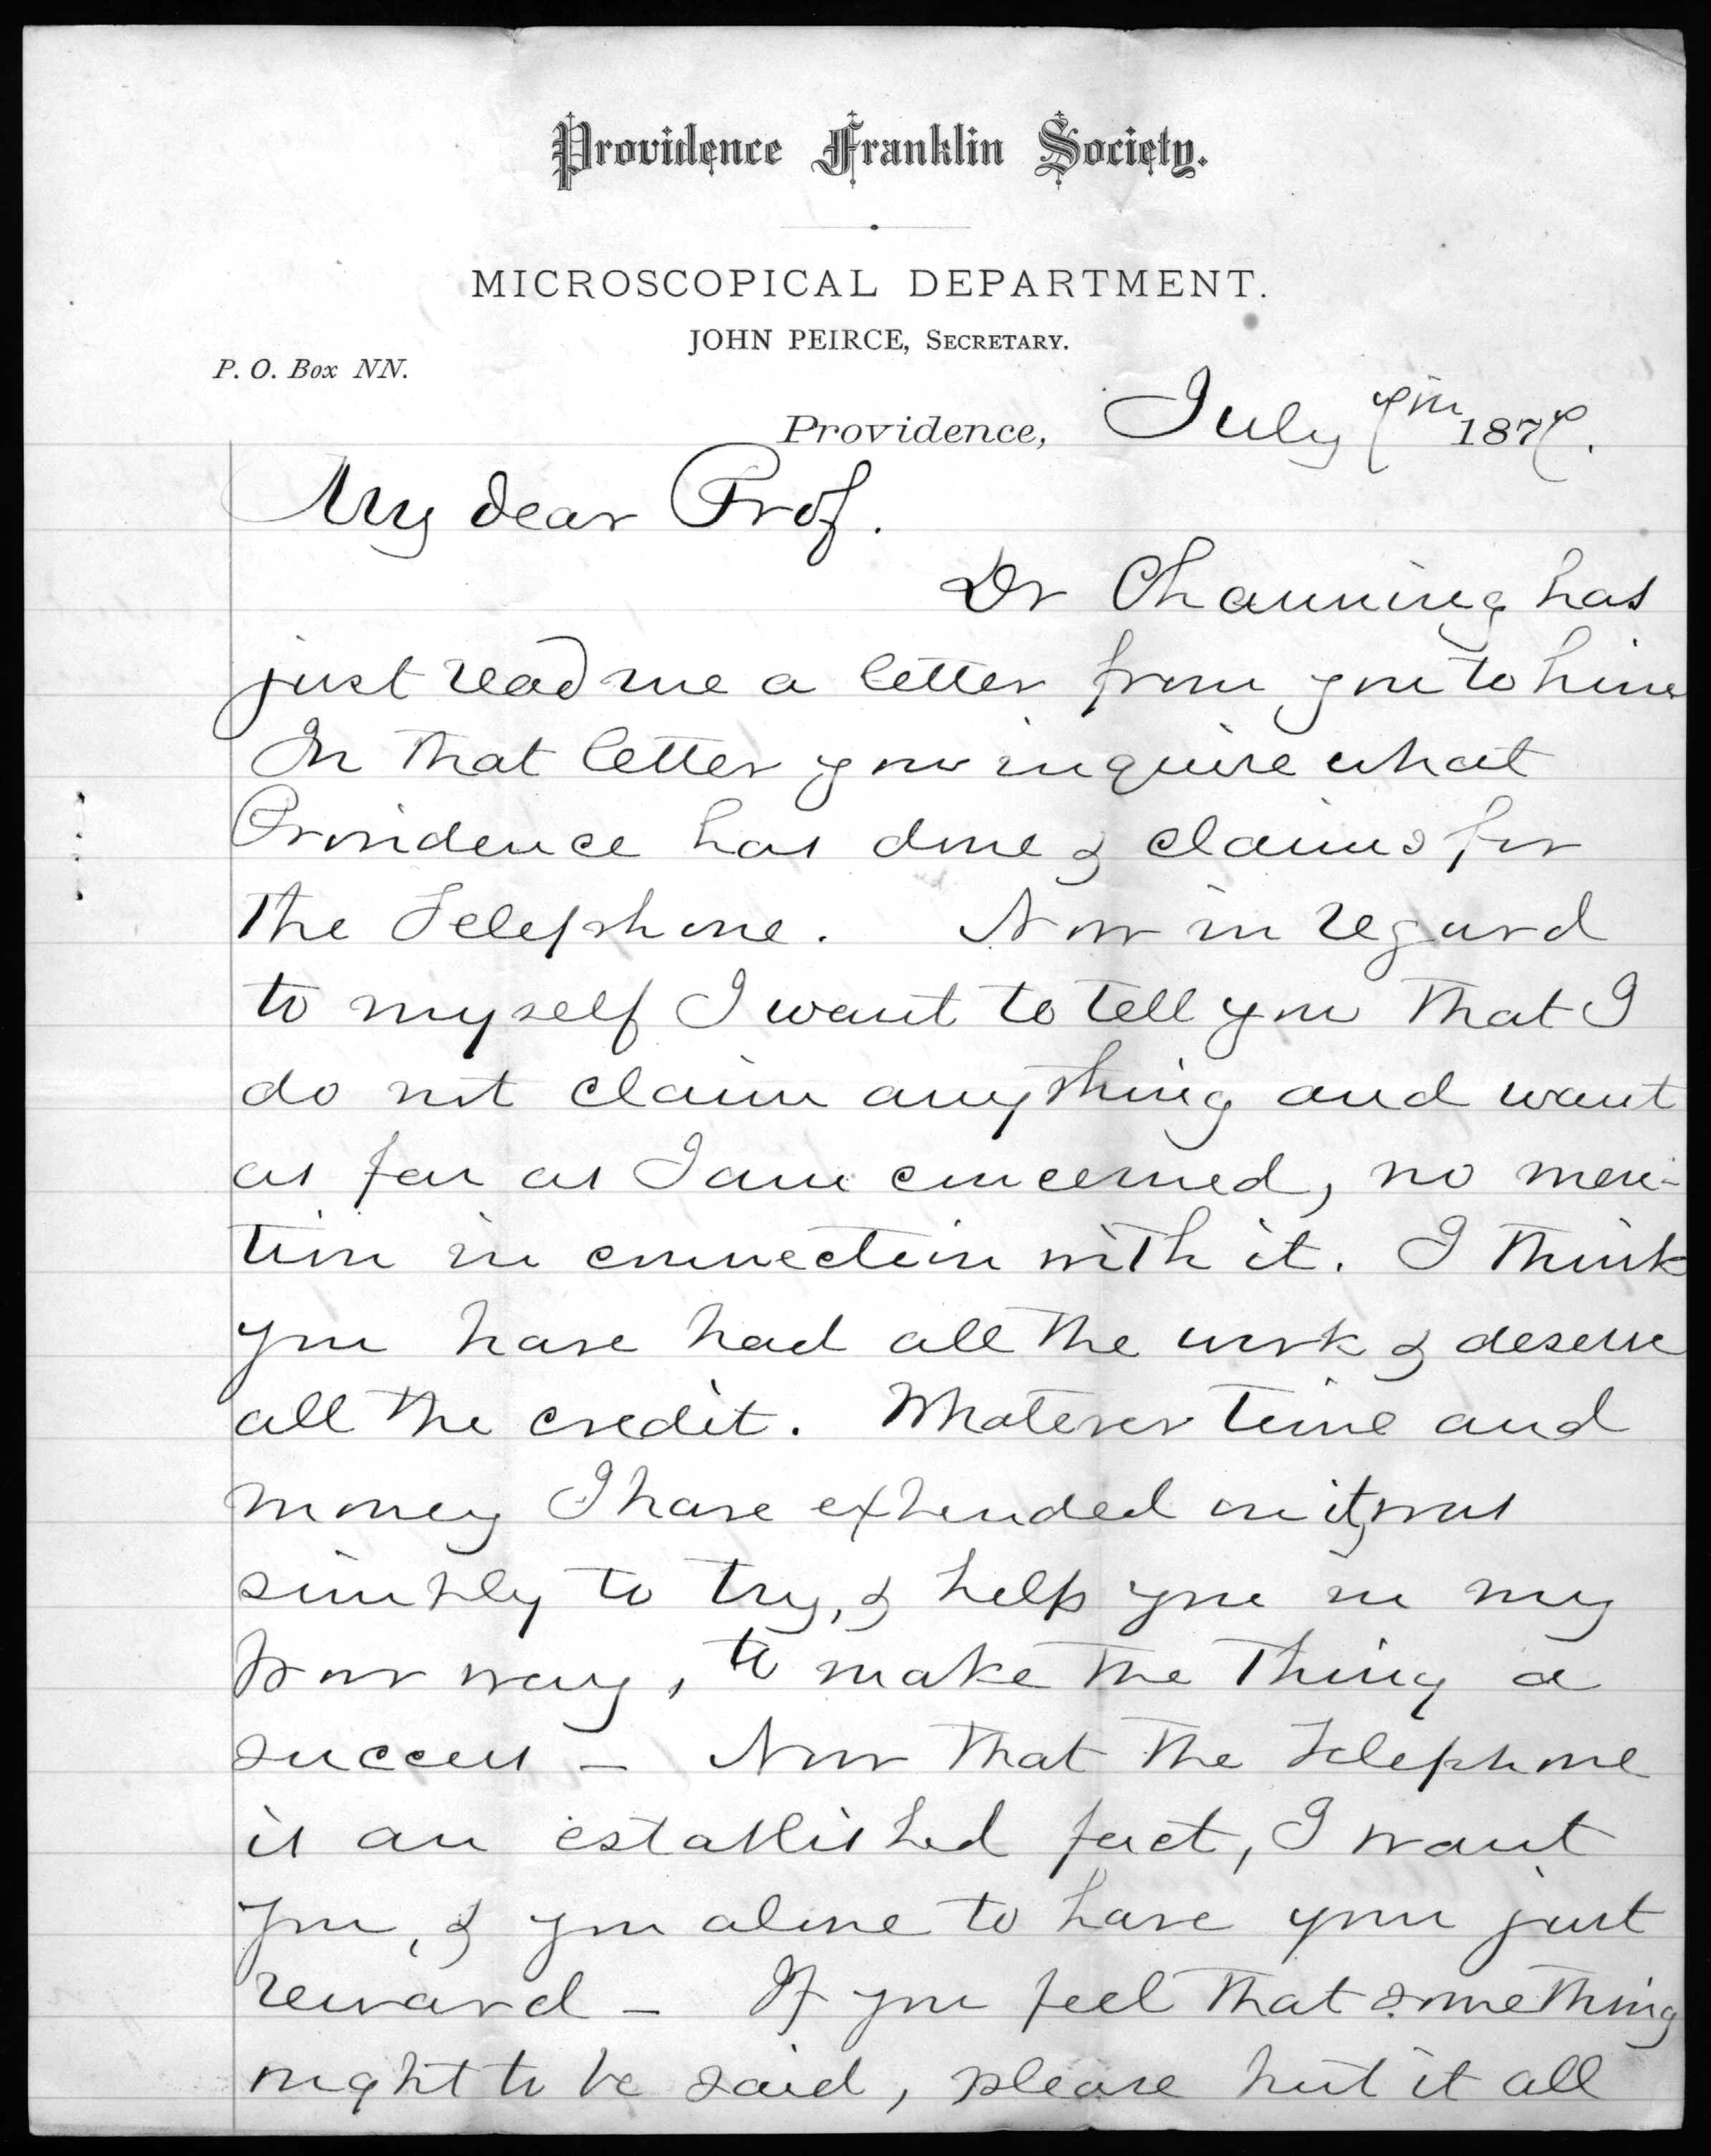 Providence Franklin Society.
MICROSCOPICAL DEPARTMENT.
JOHN PEIRCE, SECRETARY.
P. O. Box NN.
Providence, July 7th 1877.
My dear Prof.
Dr Channing has
just read me a letter from you to him
In that letter you inquire what
Providence has done & claims for
the Telephone. Now in regard
to myself I want to tell you that I
do not claim anything and want
as far as I am concerned, no men-
tion in connection with it. I think
you have had all the work & deserve
all the credit. Whatever time and
money I have expended on it, was
simply to try, & help you in my
poor way, to make the thing a
success - Now that the Telephone
is an established fact, I want
you, & you alone to have your just
reward - If you feel that something
ought to be said, please put it all